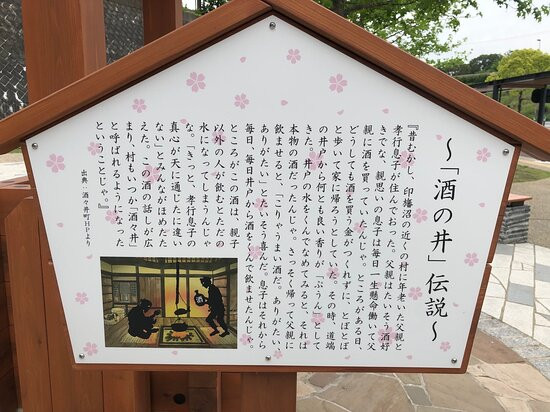 ～「酒の井」伝説～
『昔むかし、印旛沼の近くの村に年老いた父親と
孝行息子が住んでおった。父親はたいそう酒好
きでな、親思いの息子は毎日一生懸命働いて父
親に酒を買っていたんじゃ。ところがある日、
どうしても酒を買う金がつくれずに、とぼとぼ
と歩いて家に帰ろうとしていた。その時、道端
の井戸から何とも良い香りが「ぷうん」として
きた。井戸の水をくんでなめてみると、それは
本物の酒だったんじゃ。さっそく帰って父親に
飲ませると、「こりゃうまい酒だ。ありがたい、
ありがたい」とたいそう喜んだ。息子はそれから
毎日、毎日井戸から酒をくんで飲ませたんじゃ。
ところがこの酒は、親子
以外の人が飲むとただの
水になってしまうんじゃ
な。「きっと、孝行息子の
真心が天に通じたに違い
ない」とみんながほめたた
えた。この酒の話しが広
まり、村もいつか「酒々井」
と呼ばれるようになった
ということじゃ。』
出典：酒々井町HPより
酒